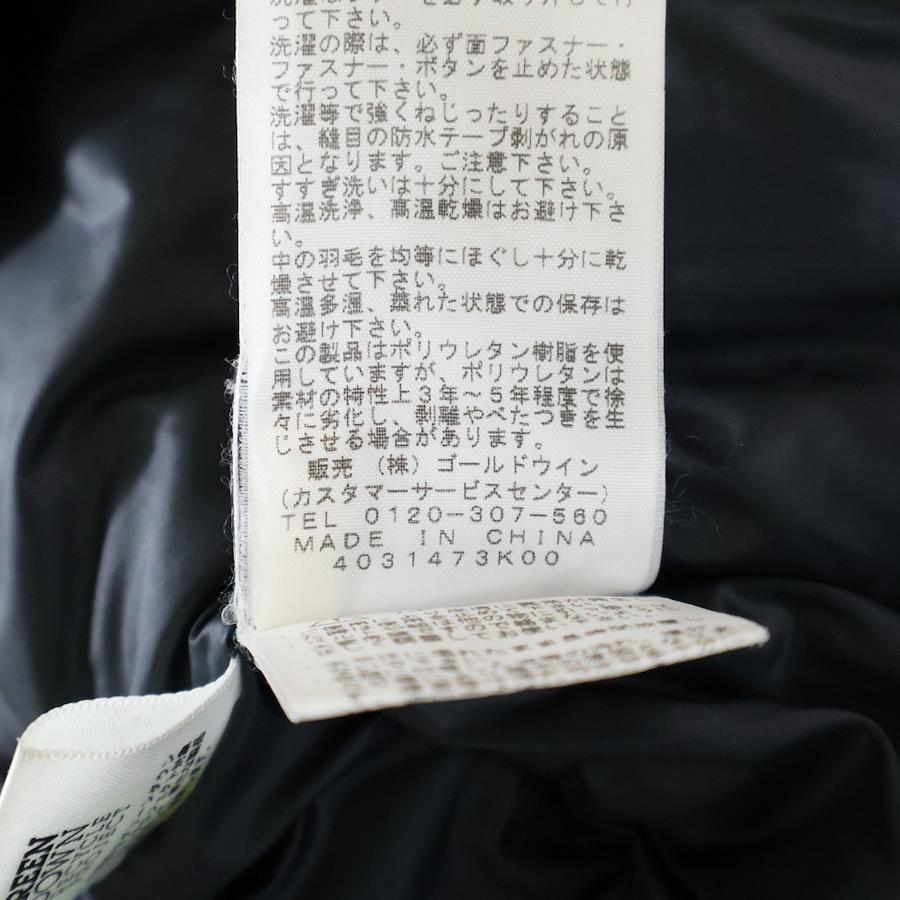 って下さい。
洗濯の際は、必ず面ファスナー・
ファスナー・ボタンを止めた状態
で行って下さい。
洗濯等で強くねじったりすること
は、縫目の防水テープ剥がれの原
因となります。ご注意下さい。
すすぎ洗いは十分にして下さい。
高温洗浄、高温乾燥はお避け下さ
い。
中の羽毛を均等にほぐし十分に乾
燥させて下さい。
高温多湿、蒸れた状態での保存は
お避け下さい。
この製品はポリウレタン樹脂を使
用していますが、ポリウレタンは
素材の特性上3年～5年程度で徐
々に劣化し、剥離やべたつきを生
じさせる場合があります。
販売 (株)ゴールドウイン
(カスタマーサービスセンター)
TEL 0120-307-560
MADE IN CHINA
4031473K00
GREEN
DOWN
RECYCLE
PROJECT